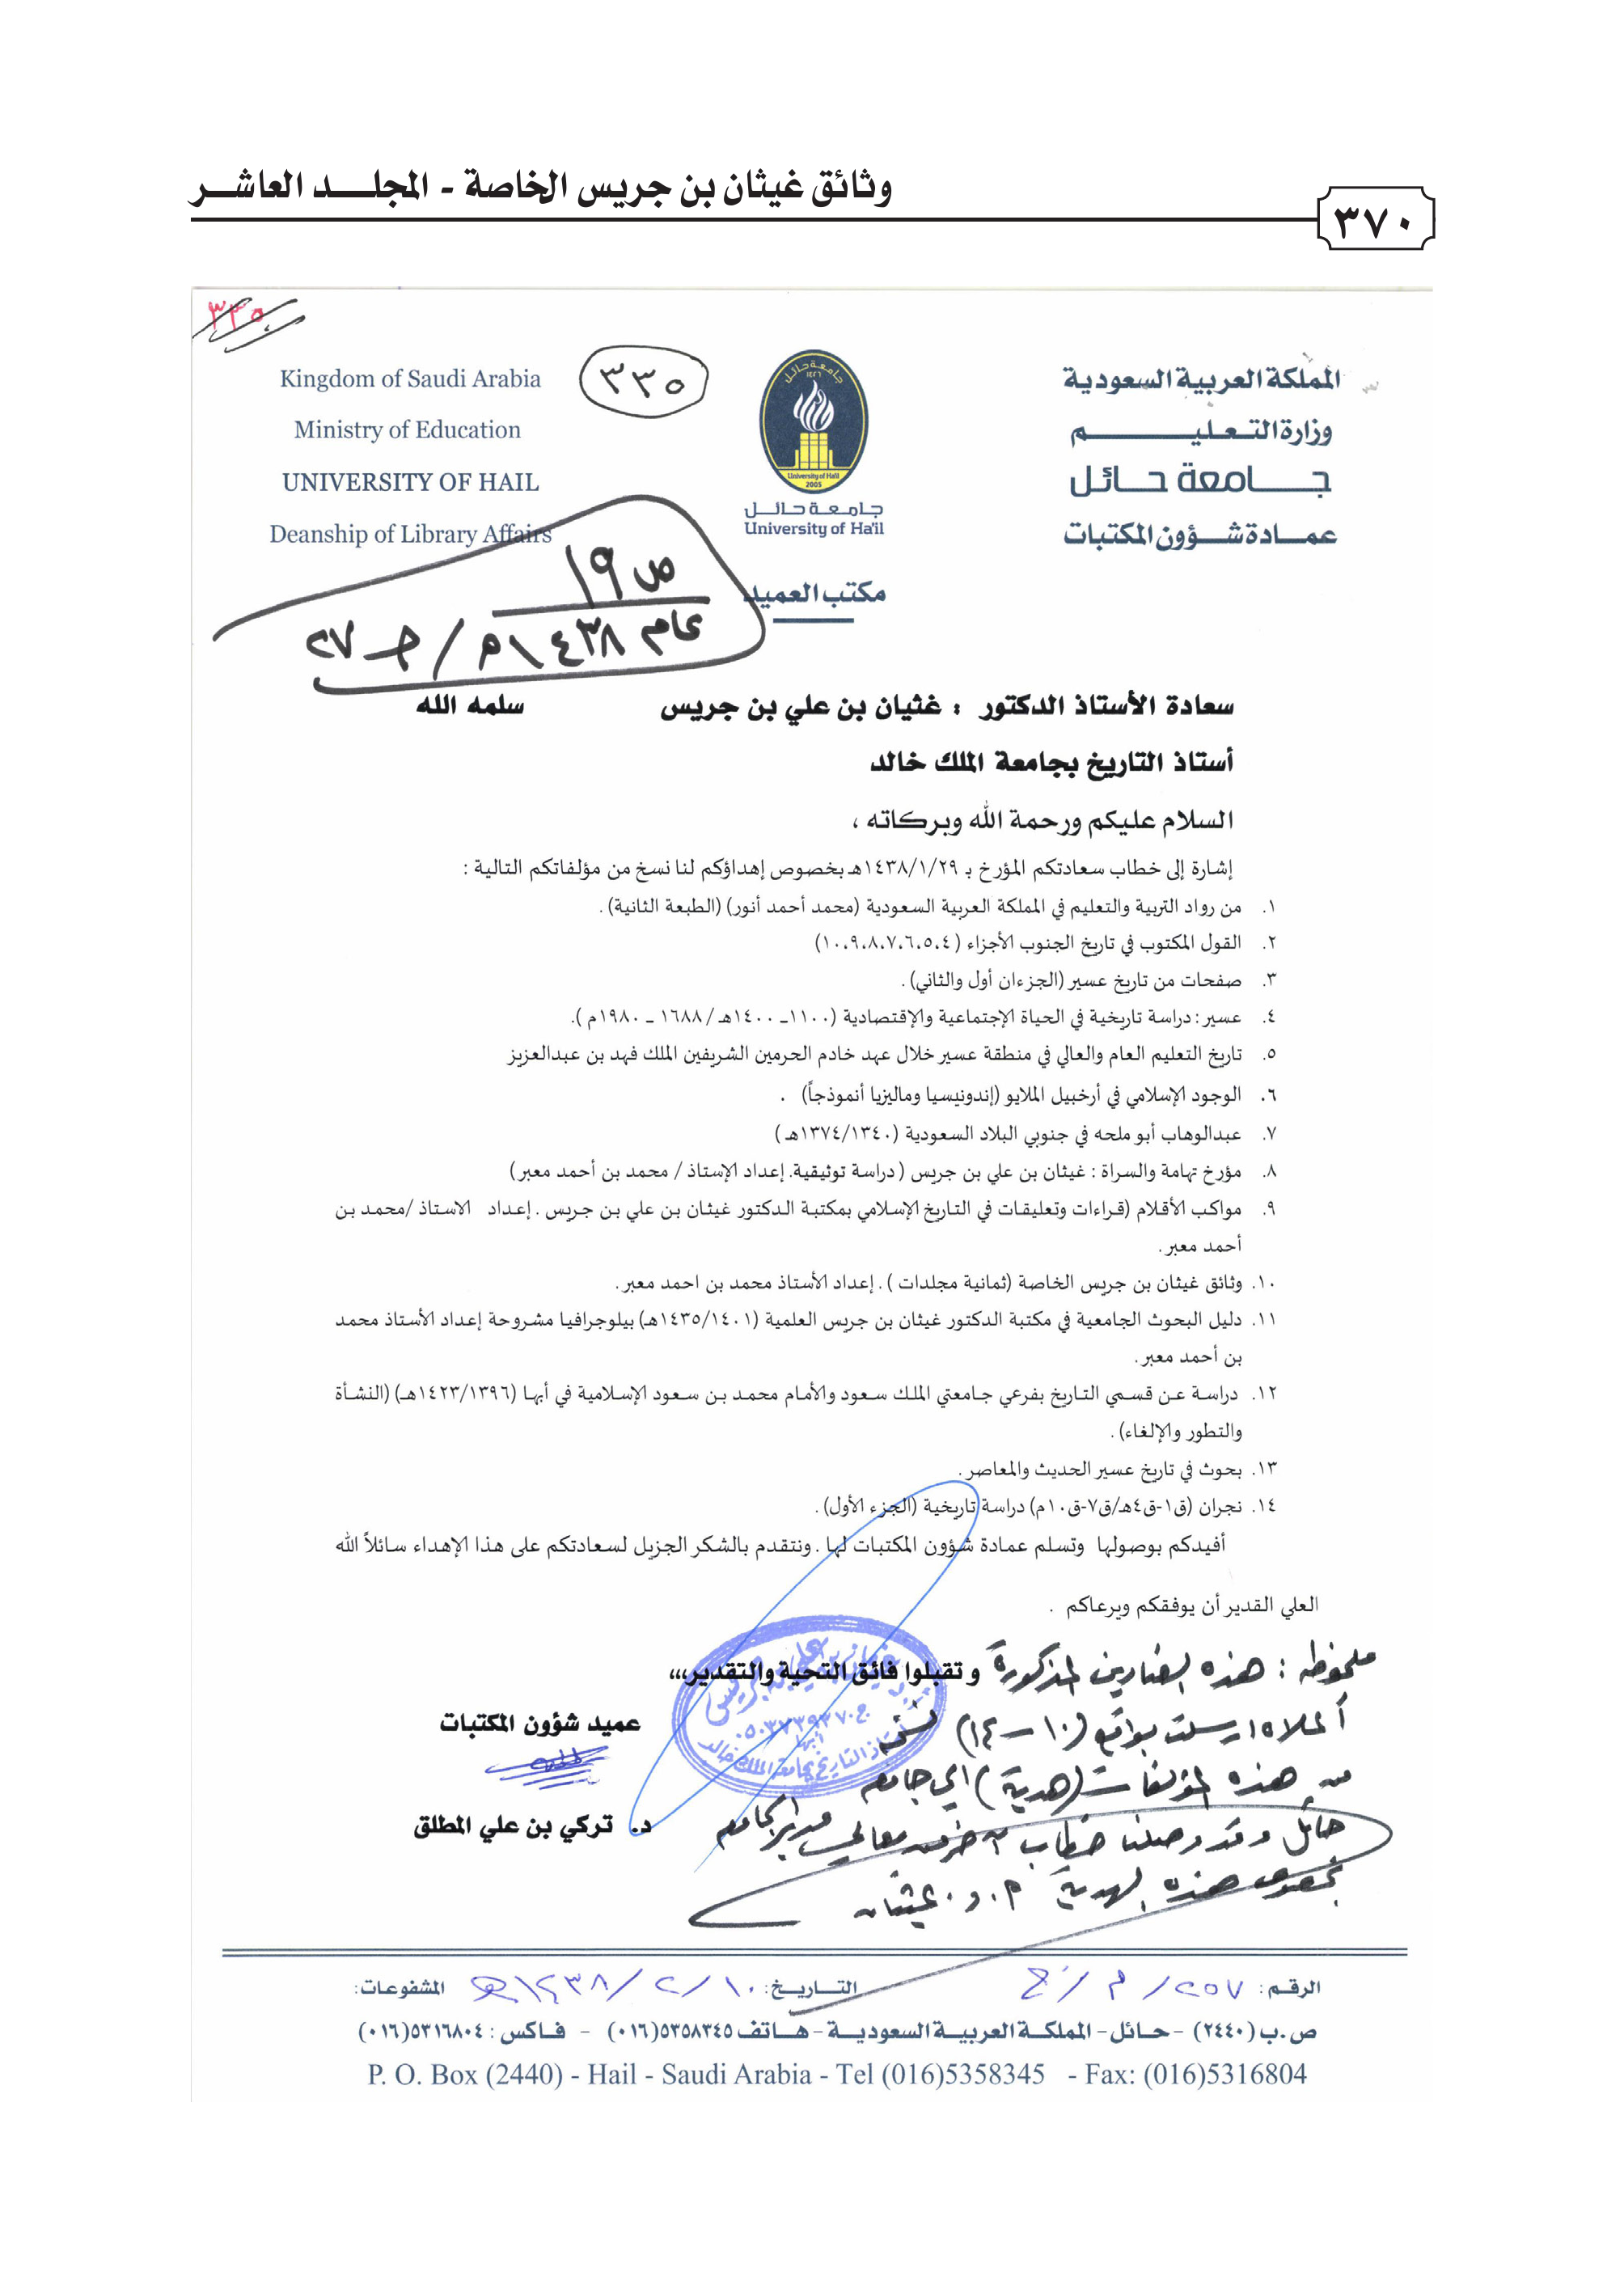 وثائق غيثان بن جريس الخاصة - المجلد العاشر
٣٧٠
٣٣٥
المملكة العربية السعودية
وزارة التعليم
جامعة حائل
عمادة شؤون المكتبات
جامعة حائل
١٤٢٦
University of Ha'il
2005
جامعة حائل
University of Ha'il
مكتب العميد
٣٣٥
Kingdom of Saudi Arabia
Ministry of Education
UNIVERSITY OF HAIL
Deanship of Library Affairs
ص ١٩
عام ١٤٣٨
سعادة الأستاذ الدكتور : غثيان بن علي بن جريس سلمه الله
أستاذ التاريخ بجامعة الملك خالد
السلام عليكم ورحمة الله وبركاته ،
إشارة إلى خطاب سعادتكم المؤرخ بـ ١٤٣٨/١/٢٩هـ بخصوص إهداؤكم لنا نسخ من مؤلفاتكم التالية :
١. من رواد التربية والتعليم في المملكة العربية السعودية (محمد أحمد أنور) (الطبعة الثانية) .
٢. القول المكتوب في تاريخ الجنوب الأجزاء (١٠،٩،٨،٧،٦،٥،٤)
٣. صفحات من تاريخ عسير (الجزءان أول والثاني) .
٤. عسير : دراسة تاريخية في الحياة الإجتماعية والإقتصادية (١١٠٠ـ ١٤٠٠هـ / ١٦٨٨ ـ ١٩٨٠م ).
٥. تاريخ التعليم العام والعالي في منطقة عسير خلال عهد خادم الحرمين الشريفين الملك فهد بن عبدالعزيز
٦. الوجود الإسلامي في أرخبيل الملايو (إندونيسيا وماليزيا أنموذجاً) .
٧. عبدالوهاب أبو ملحه في جنوبي البلاد السعودية (١٣٧٤/١٣٤٠هـ )
٨. مؤرخ تهامة والسراة : غيثان بن علي بن جريس ( دراسة توثيقية. إعداد الإستاذ / محمد بن أحمد معبر)
٩. مواكب الأقلام (قراءات وتعليقات في التاريخ الإسلامي بمكتبة الدكتور غيثان بن علي بن جريس . إعداد الاستاذ /محمد بن
أحمد معبر .
١٠. وثائق غيثان بن جريس الخاصة (ثمانية مجلدات ) . إعداد الأستاذ محمد بن احمد معبر .
١١. دليل البحوث الجامعية في مكتبة الدكتور غيثان بن جريس العلمية (١٤٣٥/١٤٠١هـ) بيلوجرافيا مشروحة إعداد الأستاذ محمد
بن أحمد معبر .
١٢. دراسة عن قسمي التاريخ بفرعي جامعتي الملك سعود والأمام محمد بن سعود الإسلامية في أبها (١٤٢٣/١٣٩٦هـ) (النشأة
والتطور والإلغاء) .
١٣. بحوث في تاريخ عسير الحديث والمعاصر .
١٤. نجران (ق١-ق٤هـ/ق٧-ق١٠م) دراسة تاريخية (الجزء الأول) .
أفيدكم بوصولها وتسلم عمادة شؤون المكتبات لها . ونتقدم بالشكر الجزيل لسعادتكم على هذا الإهداء سائلاً الله
العلي القدير أن يوفقكم ويرعاكم .
وتقبلوا فائق التحية والتقدير,,,
ملحوظه : هذه العناوين المذكورة
أعلاه ارسلت بواقع (١٠-١٤) نسخ
من هذه المؤلفات (هدية) الى جامعه
حائل وقد وصلنا خطاب آخر من معالي مدير الجامعه
بخصوص هذه الهدية أ.د. غيثان
أستاذ التاريخ بجامعة الملك خالد
عميد شؤون المكتبات
د. تركي بن علي المطلق
الرقم : ٢٥٧ / م / ع التاريخ : ١٠ / ٢ / ١٤٣٨هـ المشفوعات:
ص.ب (٢٤٤٠) - حائل - المملكة العربية السعودية - هاتف ٥٣٥٨٣٤٥(٠١٦) - فاكس : ٥٣١٦٨٠٤(٠١٦)
P. O. Box (2440) - Hail - Saudi Arabia - Tel (016)5358345 - Fax: (016)5316804